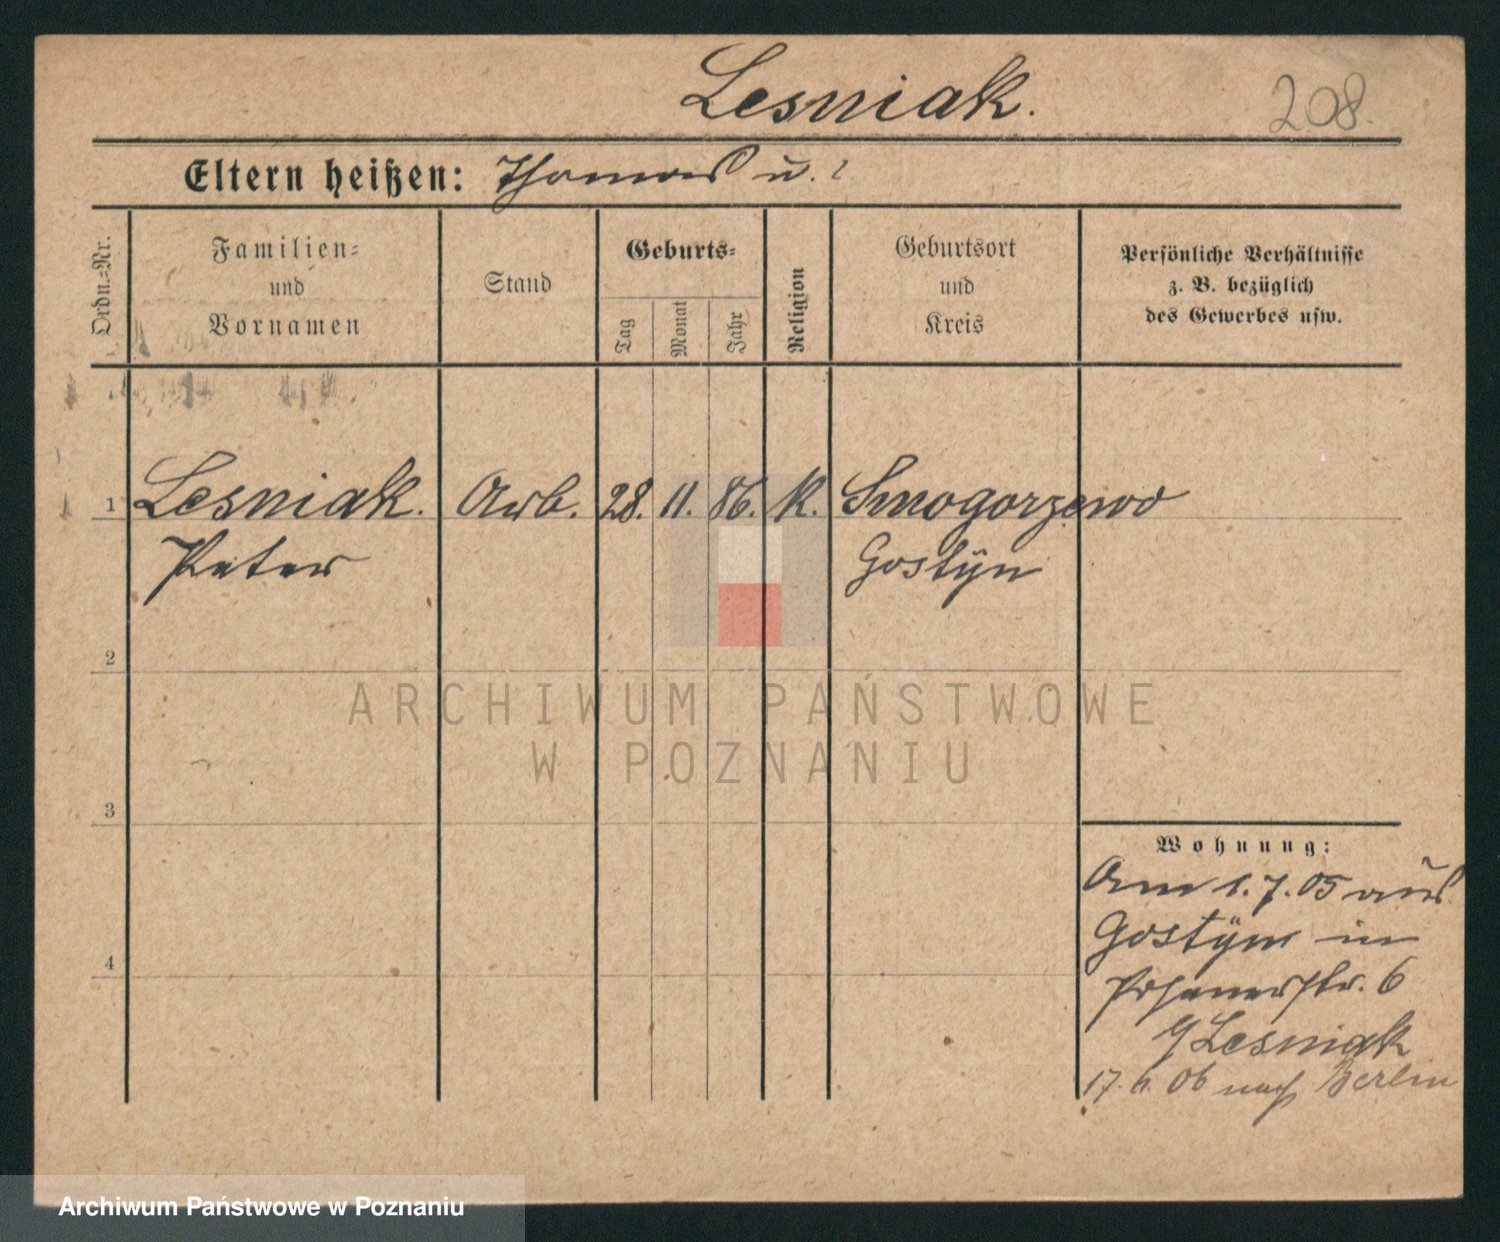 Lesniak.
208.
Eltern heißen: Thomas u. ?
Ordn.=Nr.
Familien=
und
Vornamen
Stand
Geburts=
Tag
Monat
Jahr
Religion
Geburtsort
und
Kreis
Persönliche Verhältnisse
z. B. bezüglich
des Gewerbes usw.
1 Lesniak. Arb. 28. 11. 86. K. Smogorzewo
Peter Gostÿn
2
3
4
Wohnung:
Am 1. 7. 05 aus
Gostÿn in
6
Lesniak
17. 6. 06 nach Berlin
ARCHIWUM PAŃSTWOWE
W POZNANIU
Archiwum Państwowe w Poznaniu